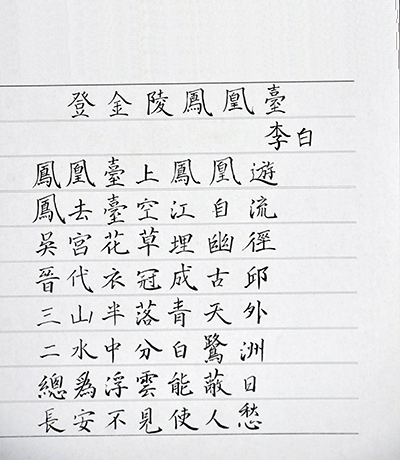 登金陵鳳凰臺
李白
鳳凰臺上鳳凰遊
鳳去臺空江自流
吳宮花草埋幽徑
晉代衣冠成古邱
三山半落青天外
二水中分白鷺洲
總為浮雲能蔽日
長安不見使人愁